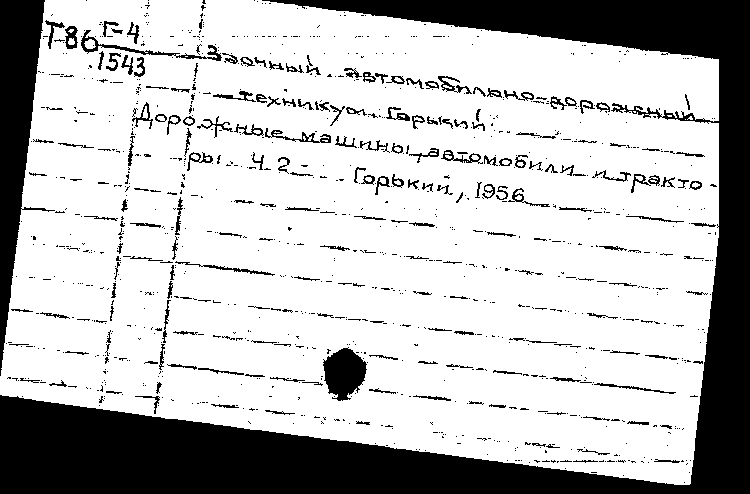 Т86 Г-4
1543
Заочный автомобильно-дорожный
техникум. Горький.
Дорожные машины, автомобили и тракто-
ры. Ч. 2. Горький, 1956